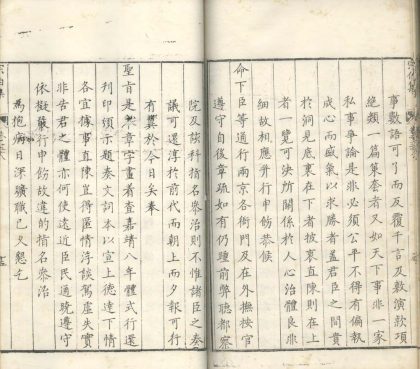 事數語可了而反覆千言及數演款項
絕類一篇策套者又如天下事非一家
私事爭論是非必須公平不得有偏執
成心而盛氣以求勝者蓋君臣之間貴
於洞見底裏在下者披衷直陳則在上
者一覽可決所關係於人心治體良非
細故相應并行申飭恭候
命下臣等通行兩京各衙門及在外撫按官
遵守自後章疏如有仍踵前弊聽都察
院及該科指名參治則不惟諸臣之奏
議可還淳於前代而朝上而夕報可行
有冀於今日矣奉
聖旨是章字畫著查嘉靖八年體式行還
列印頒示題奏文詞本以宣上德達下情
各宜據事直陳豈得匿情浮談駕虛失實
非告君之體亦何使遠近臣民通曉遵守
依擬嚴行申飭故違的指名參治
為抱病日深曠職已久懇乞
宗伯集